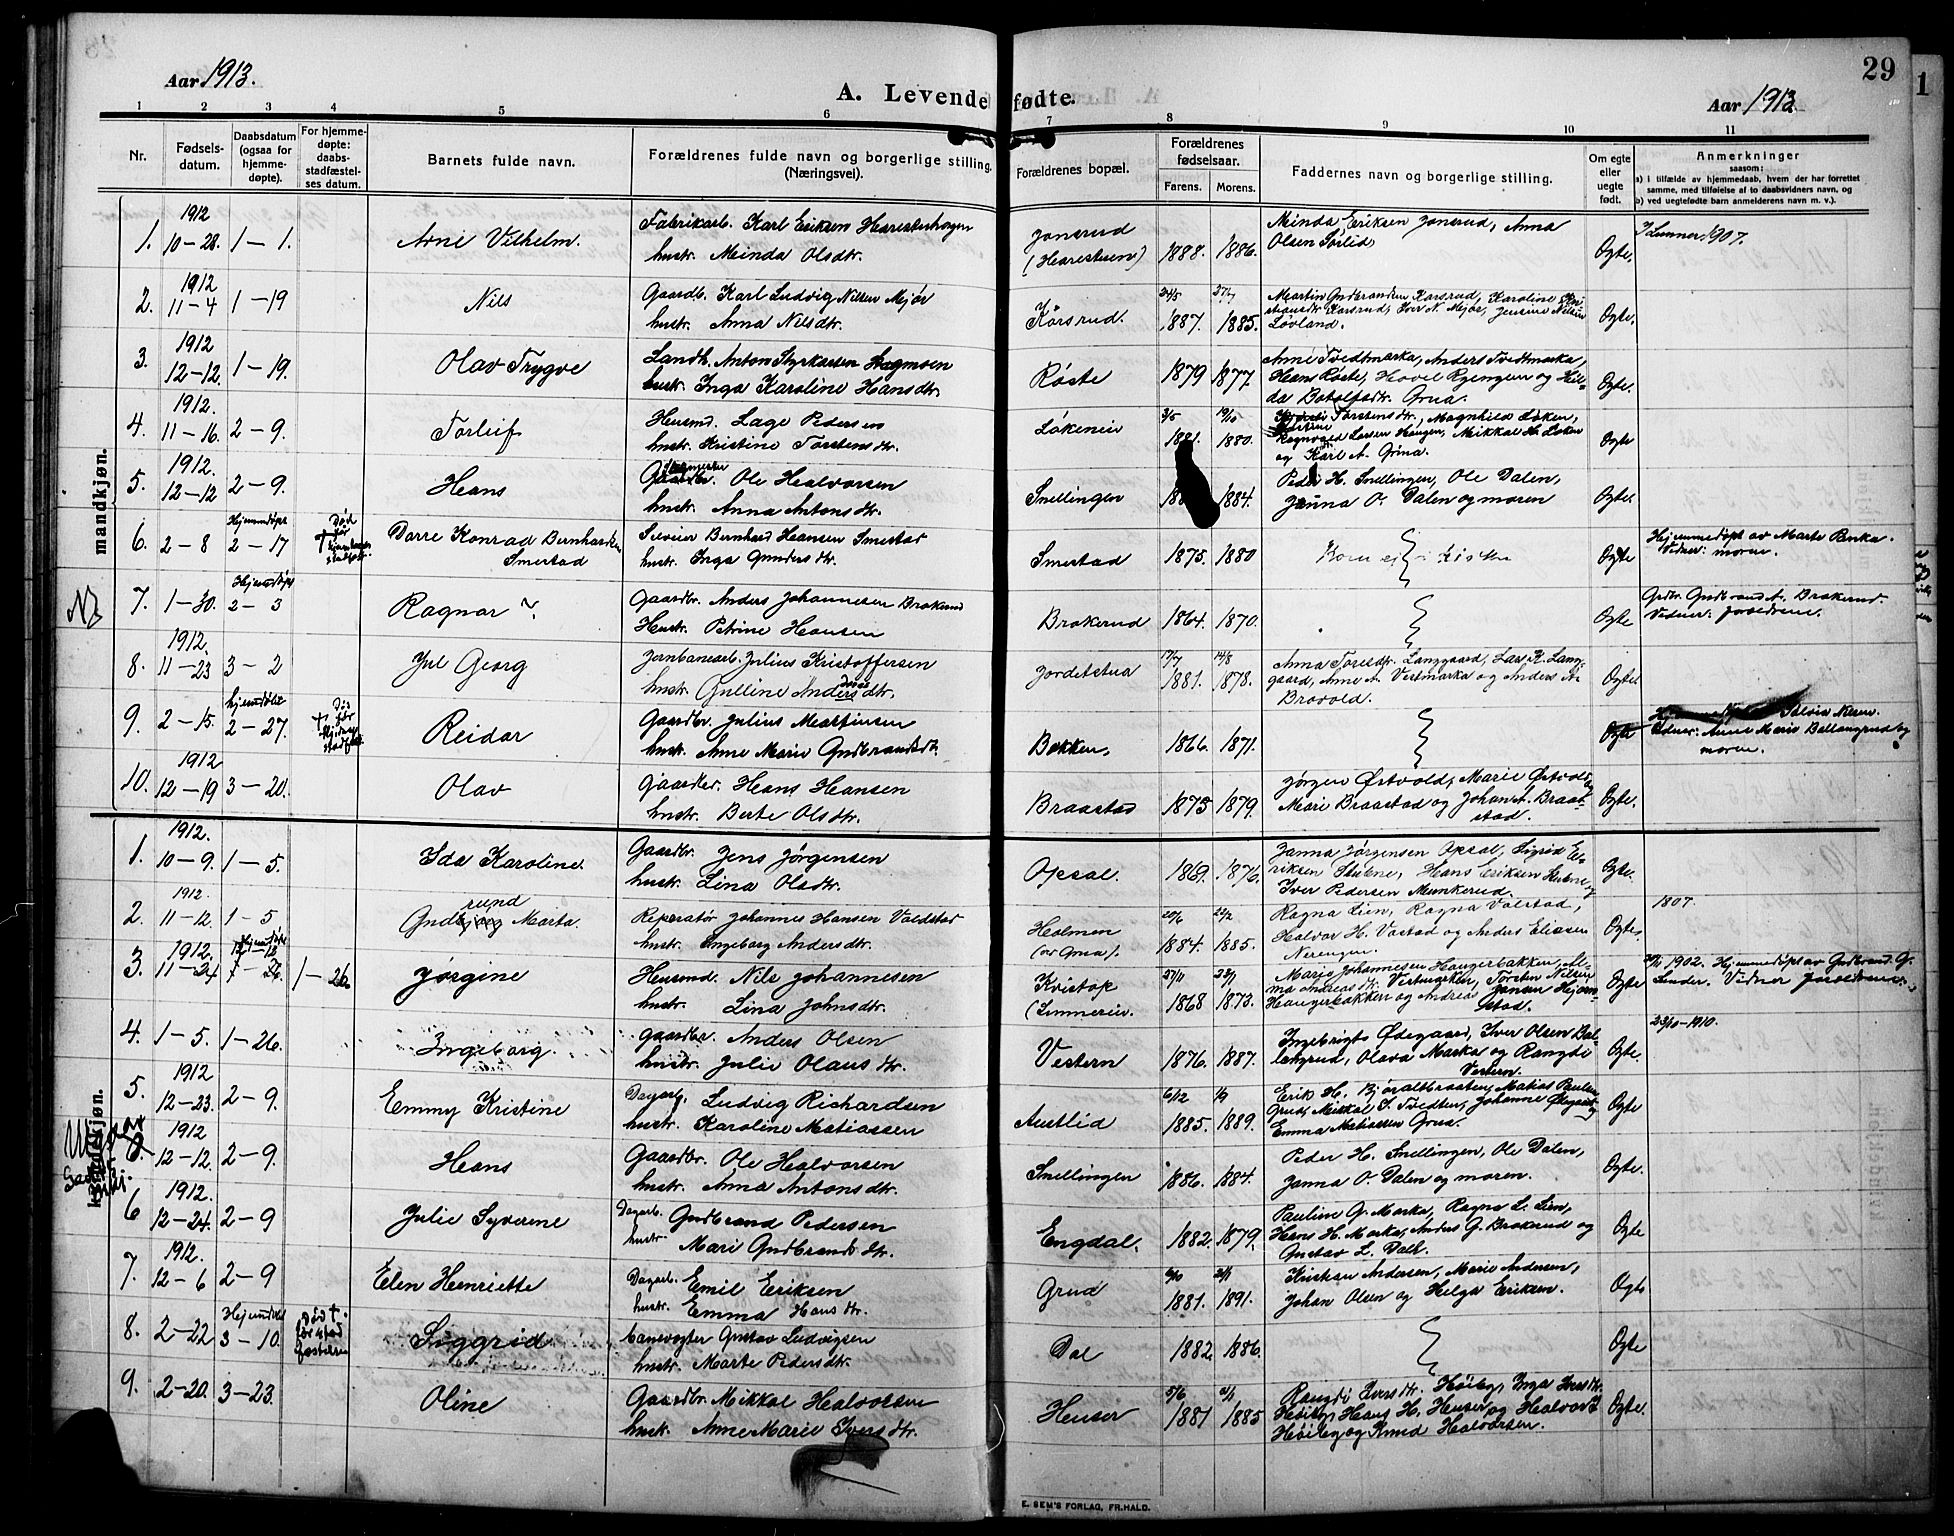 Aar 1913.
A. Levende fødte.
29
Aar 1913
1 2 3 4 5 6 7 8 9 10 11
Nr.
Fødsels-
datum.
Daabsdatum
(ogsaa for
hjemme-
døpte).
For hjemme-
døpte:
daabs-
stadfæstel-
ses datum.
Barnets fulde navn.
Forældrenes fulde navn og borgerlige stilling.
(Næringsvei).
Forældrenes bopæl.
Forældrenes
fødselsaar.
Farens. Morens.
Faddernes navn og borgerlige stilling.
Om egte
eller
uegte
født.
Anmerkninger
saasom:
a) i tilfælde av hjemmedaab, hvem der har forrettet
samme, med tilføielse af to daabsvidners navn, og
b) ved uegtefødte barn anmelderens navn m. v.).
mandkjøn.
1912
1. 10-28. 1-1. Arne Vilhelm. Fabrikarb. Karl Eriksen
hustr. Minda Olsdtr. Jonsrud
(Harestuen) 1888. 1886. Minda Eriksen Jonsrud, Anna
Olsen Sørlid Egte. Lunner 1907.
1912
2. 11-4 1-19 Nils Gaardb. Karl Ludvig Nilsen Mejør
hustr. Anna Nilsdtr. Korsrud. 1887. 1885. Martin Gudbrandsen Korsrud, Karoline
Korsrud, Iver N. Mejør, Jensine Nilsen
Løvland. Egte.
1912
3. 12-12. 1-19. Olav Trygve Landh. Anton Styrkarsen
hustr. Inga Karoline Hansdtr. Røste 1879 1877. Anne Tvedtmarka, Anders Tvedtmarka,
Hans Røste, Hovel Ryengen og Hil-
da Botolfsdtr. Grua. Egte.
1912.
4. 11-16. 2-9. Torleif Husmd. Lage Pedersen
hustr. Kristine Torstensdtr. Løkeneie 3/5 1881. 19/10 1880. Torstensdtr., Magnhild Løken,
Ragnvald Larsen Haugen, Mikkal H. Løken
og Karl A. Grina. Egte
1912
5. 12-12 2-9. Hans Gaardbr. Ole Halvorsen
hustr. Anna Antonsdtr. Snellingen 1884. Peder H. Snellingen, Ole Dalen,
Janna O. Dalen og moren Egte
6. 2-8 Hjemmedøpt 2-17 † Død
før
Dorre Konrad Bernhardsen
Smestad Sveiser Bernhard Hansen Smestad
hustr. Inga Gundersdtr. Smestad 1875. 1880 Kom ej i kirken Egte Hjemmedøpt av Marte
Vidner: moren.
NB
7. 1-30. Hjemdøpt 2-3 Ragnar Gaardbr. Anders Johannesen Brokerud
Hustr. Petrine Hansen Brokerud 1864. 1870. Egte Grdbr. Gudbrand A. Brokerud.
Vidner: forældrene.
1912.
8. 11-23 3-2 Jul Georg Jernbanearb. Julius Kristoffersen
hustr. Gulline Andersdtr. Jordetstua 17/7 1881. 14/8 1878. Anna Toresdtr. Langgaard, Lars K. Lang-
gaard, Anne A. Vestmarka og Anders A.
Brovold. Egte
9. 2-15. hjemdøbt 2-27. † Død
før
Reidar Gaardbr. Julius Martinsen
hustr. Anne Marie Gudbrandsdt. Bakken, 1866. 1871. Egte
Vidner: Anne Marie Ballangrud og
moren.
1912
10. 12-19 3-20. Olav Gaardbr. Hans Hansen
hustr. Berte Olsdtr. Braastad 1875 1879. Jørgen Østvold, Marie Østvold,
Mari Braastad og Johan A. Braa-
stad. Egte.
kvindekjøn.
1912.
1. 10-9. 1-5. Ida Karoline. Gaardbr. Jens Jørgensen
hustr. Lina Olsdtr. Opsal. 1869. 1876. Janna Jørgensen Opsal, Sigrid E-
riksen Stubne, Hans Eriksen Stubne og
Iver Pedersen Munkerud. Egte.
1912.
2. 11-12. 1-5 rund
Marta. Reperatør Johannes Hansen Valdstad
hustr. Ingeborg Andersdtr. Holmen
(ov Grua). 20/6 1884. 22/2 1885. Ragna Lien, Ragna Volstad,
Halvor H. Vastad og Anders Eliasen
Nerengen Egte. 1807.
1912.
3. 11-24 Hjemdøbt 1-26 Jørgine Husmd. Nils Johannesen
hustr. Lina Johnsdtr. Kristop
(Lunnereie. 27/11 1868 1873. Marje Johannesen Haugerbakken,
Vestmarken, Torsten Nilsen
Haugerbakken og Andreas Jonsen Hjørn-
stad. Egte 1902. Hjemmedøpt av Gudbrand G.
Sender. Vidner forældrene.
4. 1-5. 1-26. Ingeborg. gaardbr. Anders Olsen
hustr. Julie Olausdtr. Vestern 1876. 1887. Ingebrigt Ødegaard, Iver Olsen Bal-
langrud, Olava Marka og Rangdi
Vestern. Egte 23/10-1910.
1912
5. 12-23. 2-9. Emmy Kristine Dagarb. Ludvig Richardsen
hustr. Karoline Matiassen Austlid 6/12 1885. 1889. Erik H. Bjøraltbraaten, Matias Paulsen
Grua, Mikkal S. Tvedten, Johanne Ødegaard og
Emma Matiassen Grua. Egte
1912
12-12. 2-9. Hans Gaardbr. Ole Halvorsen
hustr. Anna Antonsdtr. Snellingen 1886. 1884. Peder H. Snellingen, Ole Dalen,
Janna O. Dalen og moren. Egte.
1912
6 12-24. 2-9 Julie Syverine Dagarb. Gudbrand Pedersen
hustr. Mari Gudbrandsdtr. Engdal. 1882. 1879. Pauline G. Marka, Ragna L. Lien,
Hans H. Marka, Anders G. Brokerud og
Gustav L. Dal. Egte
1912.
7. 12-6 2-9 Elen Henriette Dagarb. Emil Eriksen
hustr. Emma Hansdtr. Grua 1881. 1891. Kristian Andersen, Marie Andersen,
Johan Olsen og Helga Eriksen. Egte
8. 2-22 Hjemdøbt 3-10. Død †
før stad
fæstelsen Siggrid banevogter Gustav Ludvigsen
hustr. Marte Pedersdtr. Dal 1882. 1886. Egte
9. 2-20. 3-23. Oline Gaardbr. Mikkal Halvorsen
hustr. Anne Marie Iversdtr. Henser 5/6 1881 1885 Rangdi Iversdtr. Høiby, Inga Iversdtr.
Høiby, Hans H. Henser og Halvor I.
Høiby og Knud Halvorsen. Egte.
E. SEM'S FORLAG, FR.HALD.
1